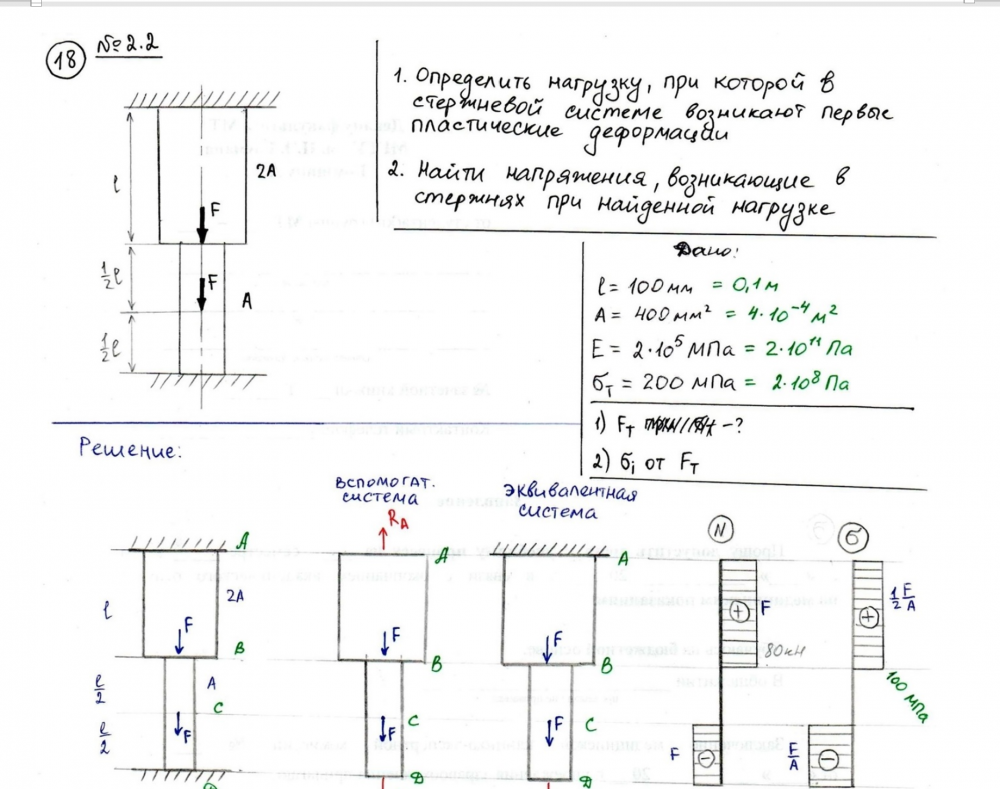 18
№ 2.2
1. Определить нагрузку, при которой в
стержневой системе возникают первые
пластические деформации
2. Найти напряжения, возникающие в
стержнях при найденной нагрузке
l
2A
F
½l
F
A
½l
Дано:
l = 100 мм = 0,1 м
A = 400 мм² = 4·10⁻⁴ м²
E = 2·10⁵ МПа = 2·10¹¹ Па
σт = 200 МПа = 2·10⁸ Па
1) Fт -?
2) σi от Fт
Решение:
вспомогат.
система
эквивалентная
система
RA
N
σ
A
A
A
l
2A
F
F
F
+
F
+
½ F/A
B
B
B
80кН
l/2
A
C
C
C
100 МПа
l/2
F
F
F
F
−
F/A
−
D
D
D